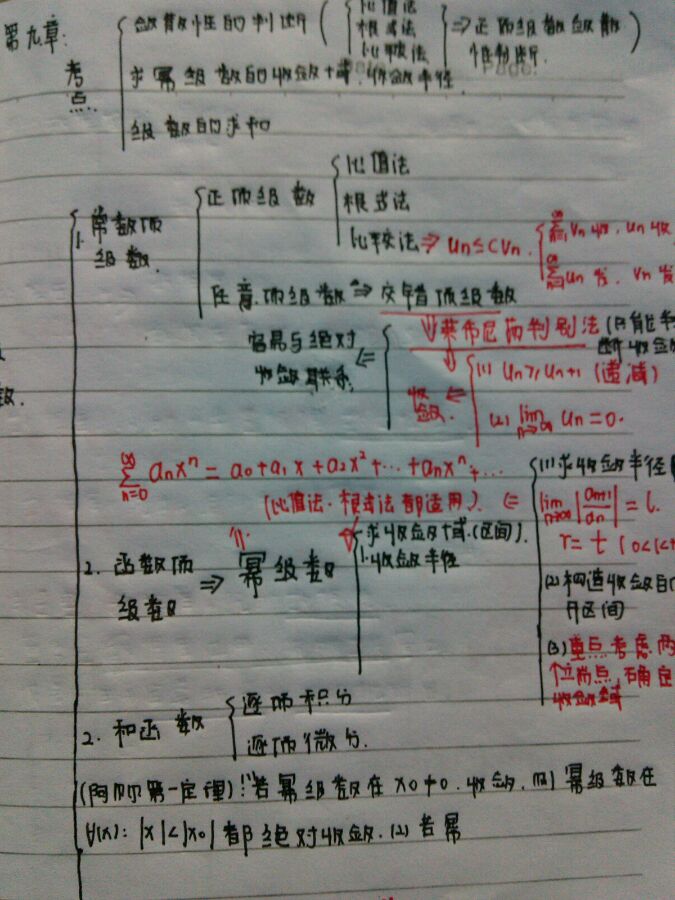 第九章:
考点
敛散性的判断(
比值法
根式法
比较法
⇒正项级数敛散
性判断.
)
求幂级数的收敛域.收敛半径
Page:
级数的求和
1. 常数项
级数.
正项级数
比值法
根式法
比较法⇒ un≤CVn.
∑ Vn 收, un 收
∑ un 发, Vn 发
任意项级数⇒交错项级数
⇓莱布尼茨判别法(只能判
断收敛
容易与绝对
收敛联系.
⇐
收敛.
⇐
(1) un≥un+1 (递减)
(2) lim n→∞ un=0.
∑ n=0 ∞ anxⁿ = a0+a1x+a2x²+…+anxⁿ+…
(比值法.根式法都适用). ⇐
(1)求收敛半径
lim n→∞ |an+1/an| = l.
2. 函数项
级数
⇒ 幂级数
求收敛域.(区间).
1.收敛半径
(2)构造收敛的
开区间
(3)重点考虑两
个端点,确定
收敛域
2. 和函数
逐项积分
逐项微分.
(阿贝尔第一定理)(1)若幂级数在x0≠0.收敛.则幂级数在
∀(x): |x|<|x0|都绝对收敛.(2)若幂
数.